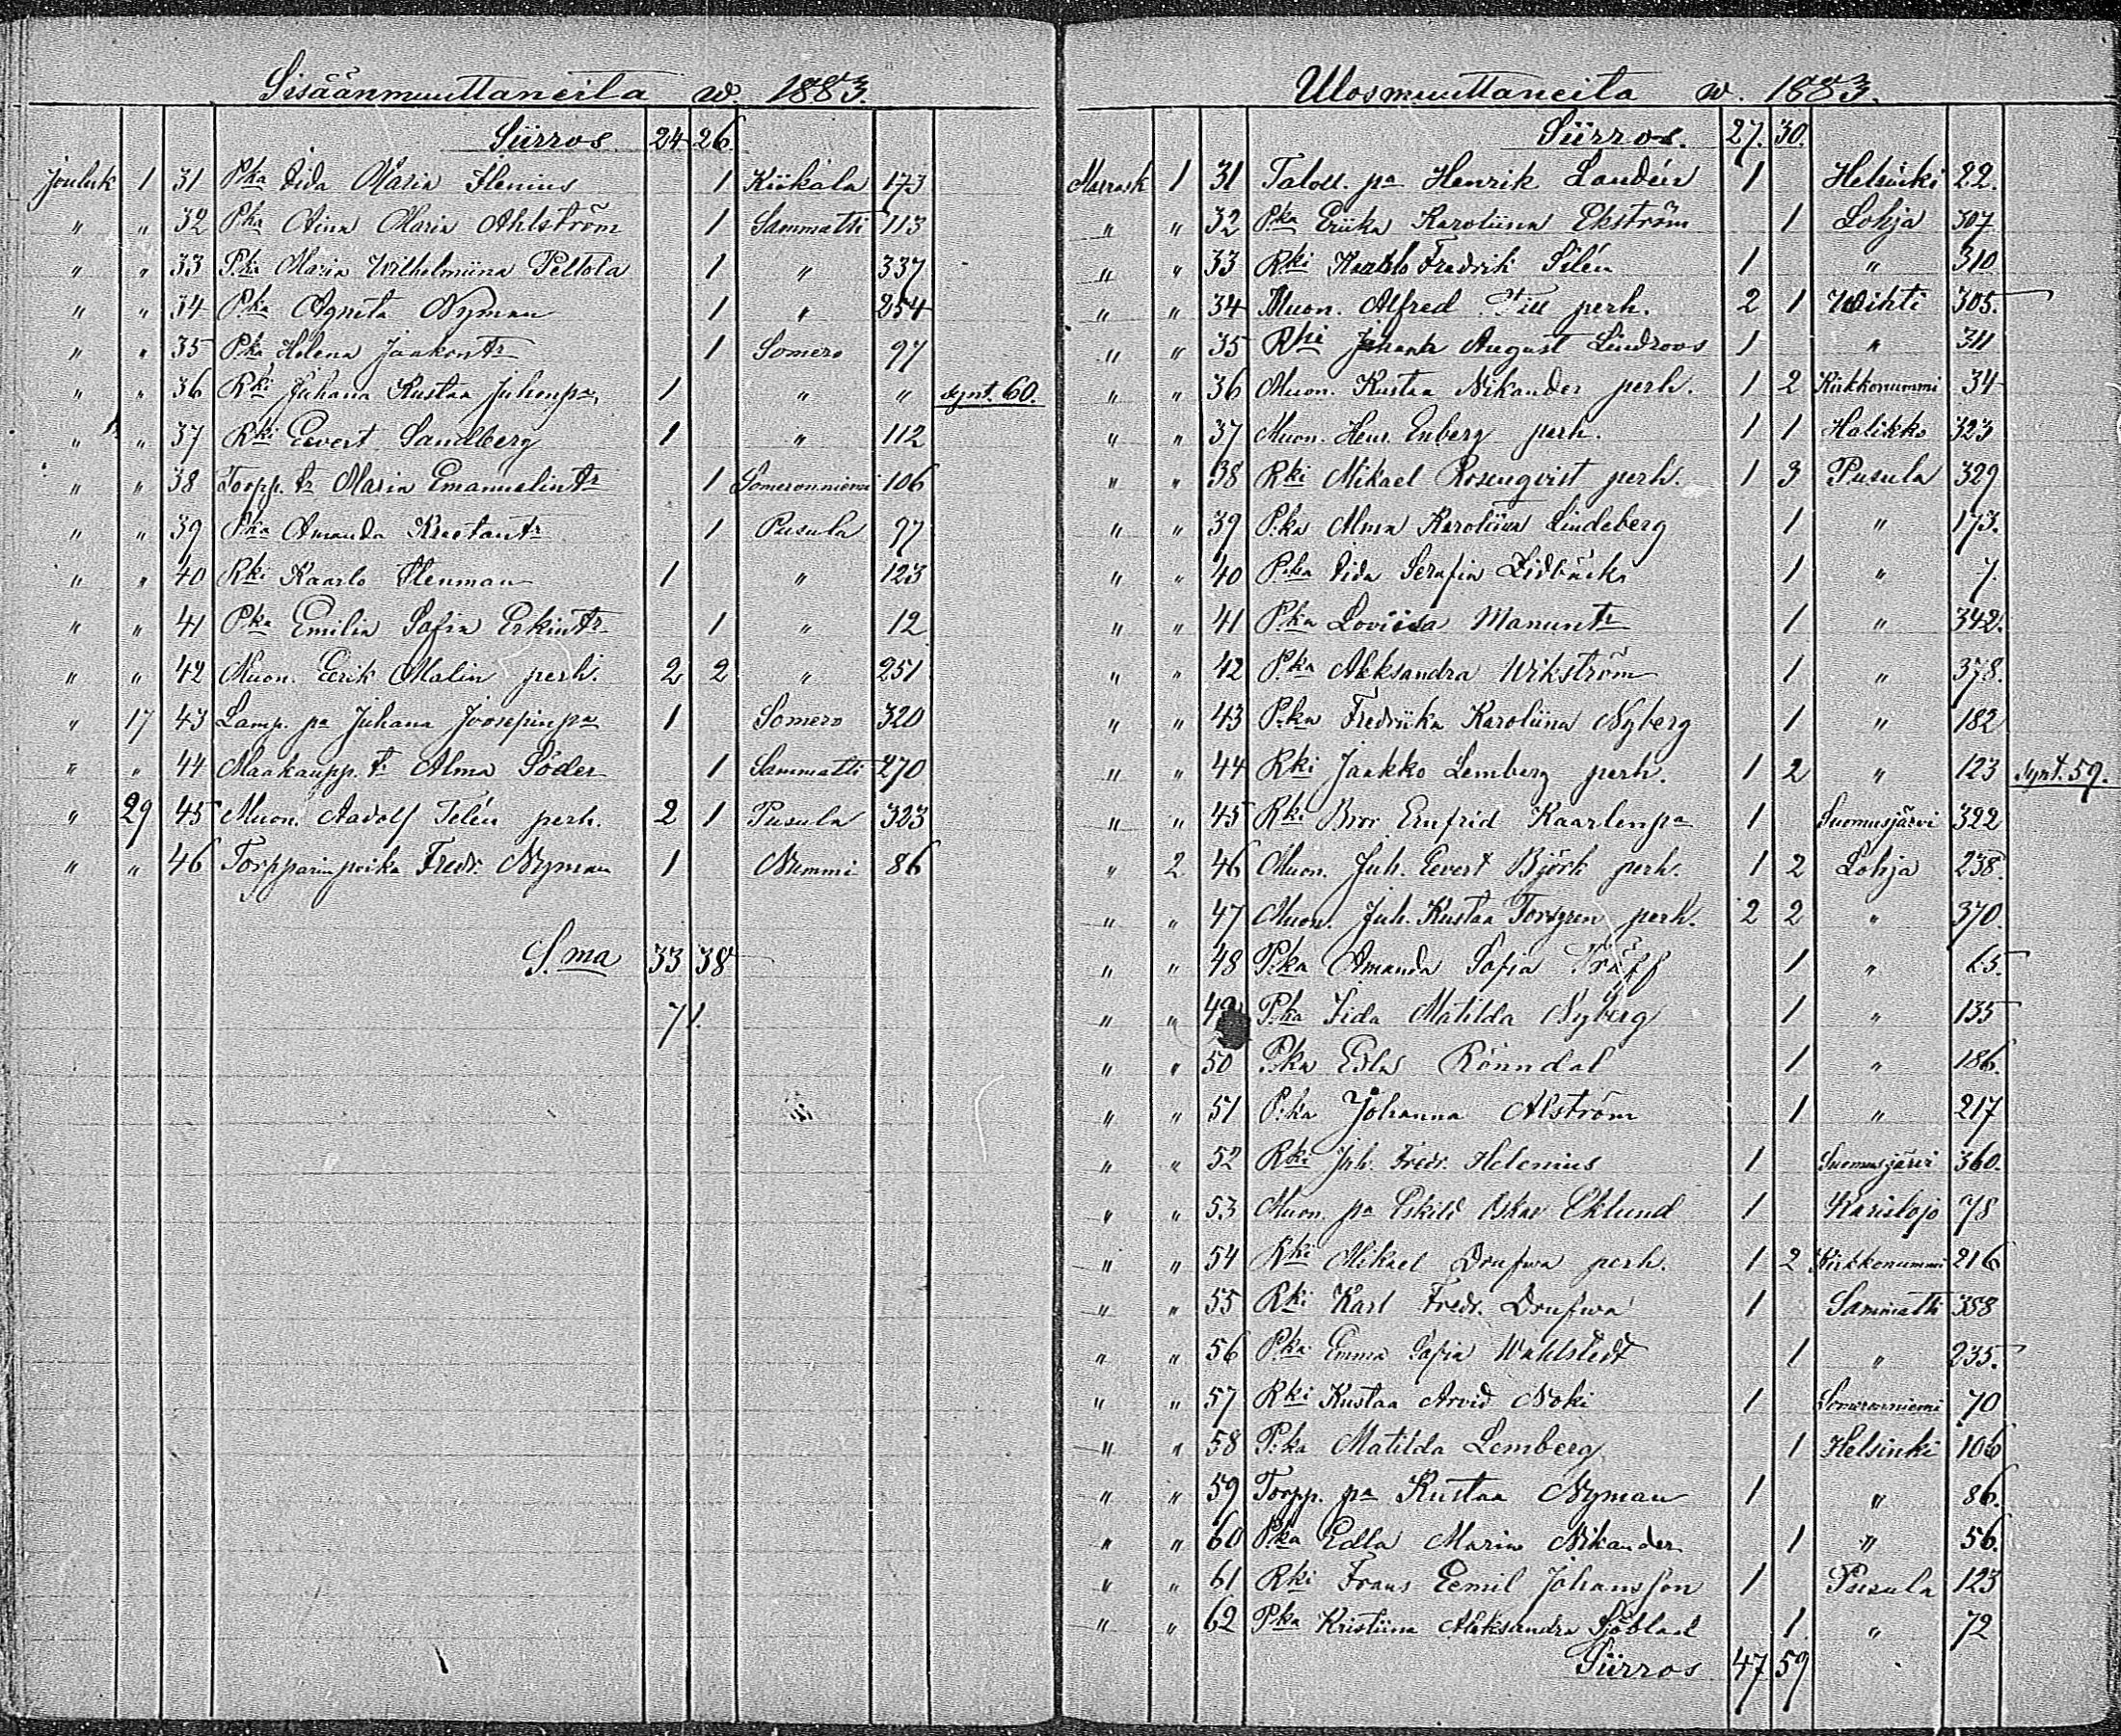 Sisäänmuuttaneita w. 1883.
Siirros 24 26
Jouluk 1 31 Pka Iida Maria Ilenius 1 Kiikala 173
" " 32 Pka Aina Maria Ahlström 1 Sammatti 113
" " 33 Pka Maria Wilhelmiina Peltola 1 " 337
" " 34 Pka Agneta Nyman 1 " 254
" " 35 Pka Helena Jaakontr 1 Somero 97
" " 36 Rki Juhana Kustaa Juhonpa 1 " " synt. 60.
" " 37 Rki Eevert Sandberg 1 " 112
" " 38 Torpp. tr Maria Emanuelintr 1 Someronniemi 106
" " 39 Pka Amanda Kustaantr 1 Pusula 97
" " 40 Rki Kaarlo Stenman 1 " 123
" " 41 Pka Emilia Sofia Erkintr 1 " 12
" " 42 Muon. Eerik Malin perh. 2 2 " 251
" 17 43 Lamp. pa Juhana Joosepinpa 1 Somero 320
" " 44 Maakaupp. tr Alma Söder 1 Sammatti 270
" 29 45 Muon. Aadolf Telén perh. 2 1 Pusula 323
" " 46 Torpparin poika Fredr. Nyman 1 Nummi 86
S:ma 33 38
71.
Ulosmuuttaneita w. 1883.
Siirros. 27. 30.
Marrask 1 31 Taloll. pa Henrik Landén 1 Helsinki 22.
" " 32 Pka Eriika Karoliina Ekström 1 Lohja 307
" " 33 Rki Kaarlo Fredrik Silén 1 " 310
" " 34 Muon. Alfred Fill perh. 2 1 Wihti 305.
" " 35 Rki Johan August Lindroos 1 " 311
" " 36 Muon. Kustaa Nikander perh. 1 2 Kirkkonummi 34
" " 37 Muon. Henr. Enberg perh. 1 1 Halikko 323
" " 38 Rki Mikael Rosenqvist perh. 1 3 Pusula 329
" " 39 P:ka Alma Karoliina Lindeberg 1 " 173.
" " 40 P:ka Iida Serafia Lidbäck 1 " 7.
" " 41 P:ka Loviisa Manuntr 1 " 342.
" " 42 P:ka Aleksandra Wikström 1 " 378.
" " 43 P:ka Fredriika Karoliina Nyberg 1 " 182
" " 44 Rki Jaakko Lemberg perh. 1 2 " 123 synt. 59.
" " 45 Rki Bror Ernfrid Kaarlenpa 1 Suomusjärvi 322
" 2 46 Muon. Juh. Eevert Björk perh. 1 2 Lohja 238.
" " 47 Muon. Juh. Kustaa Forsgren perh. 2 2 " 370.
" " 48 P:ka Amanda Sofia Träff 1 " 65.
" " 49 P:ka Iida Matilda Nyberg 1 " 135
" " 50 P:ka Edla Rönndal 1 " 186.
" " 51 P:ka Johanna Alström 1 " 217
" " 52 Rki Joh. Fredr. Helenius 1 Suomusjärvi 360.
" " 53 Muon. pa Eskild Oskar Eklund 1 Karislojo 78
" " 54 Rki Mikael Drufwa perh. 1 2 Kirkkonummi 216
" " 55 Rki Karl Fredr. Drufwa 1 Sammatti 358
" " 56 P:ka Emma Sofia Wahlstedt 1 " 235.
" " 57 Rki Kustaa Arvid Noki 1 Someronniemi 70
" " 58 P:ka Matilda Lemberg 1 Helsinki 106
" " 59 Torpp. pa Kustaa Nyman 1 " 86.
" " 60 Pka Edla Maria Nikander 1 " 56.
" " 61 Rki Frans Eemil Johansson 1 Pusula 123
" " 62 P:ka Kristiina Aleksandra Sjöblad 1 " 72
Siirros 47 59